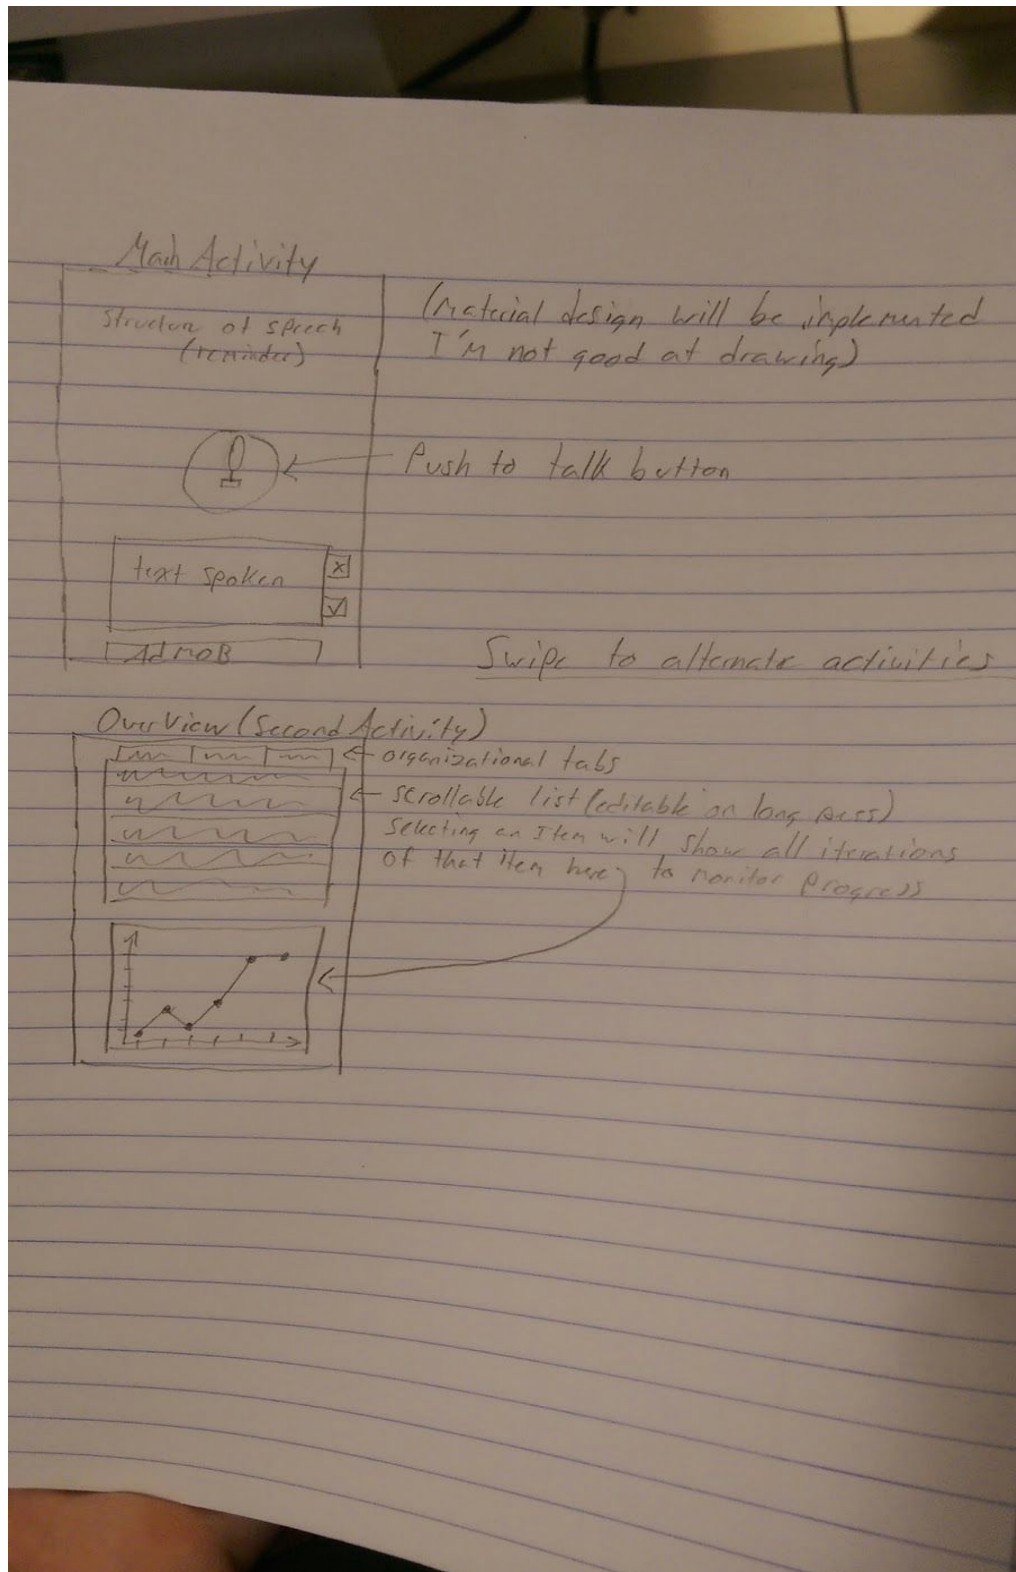 Main Activity
Structure of speech
(reminder)
(Material design will be implemented
I'm not good at drawing)
Push to talk button
text spoken
X
AdMOB
Swipe to alternate activities
OverView (Second Activity)
organizational tabs
scrollable list (editable on long press)
Selecting an Item will show all iterations
of that item here to monitor progress